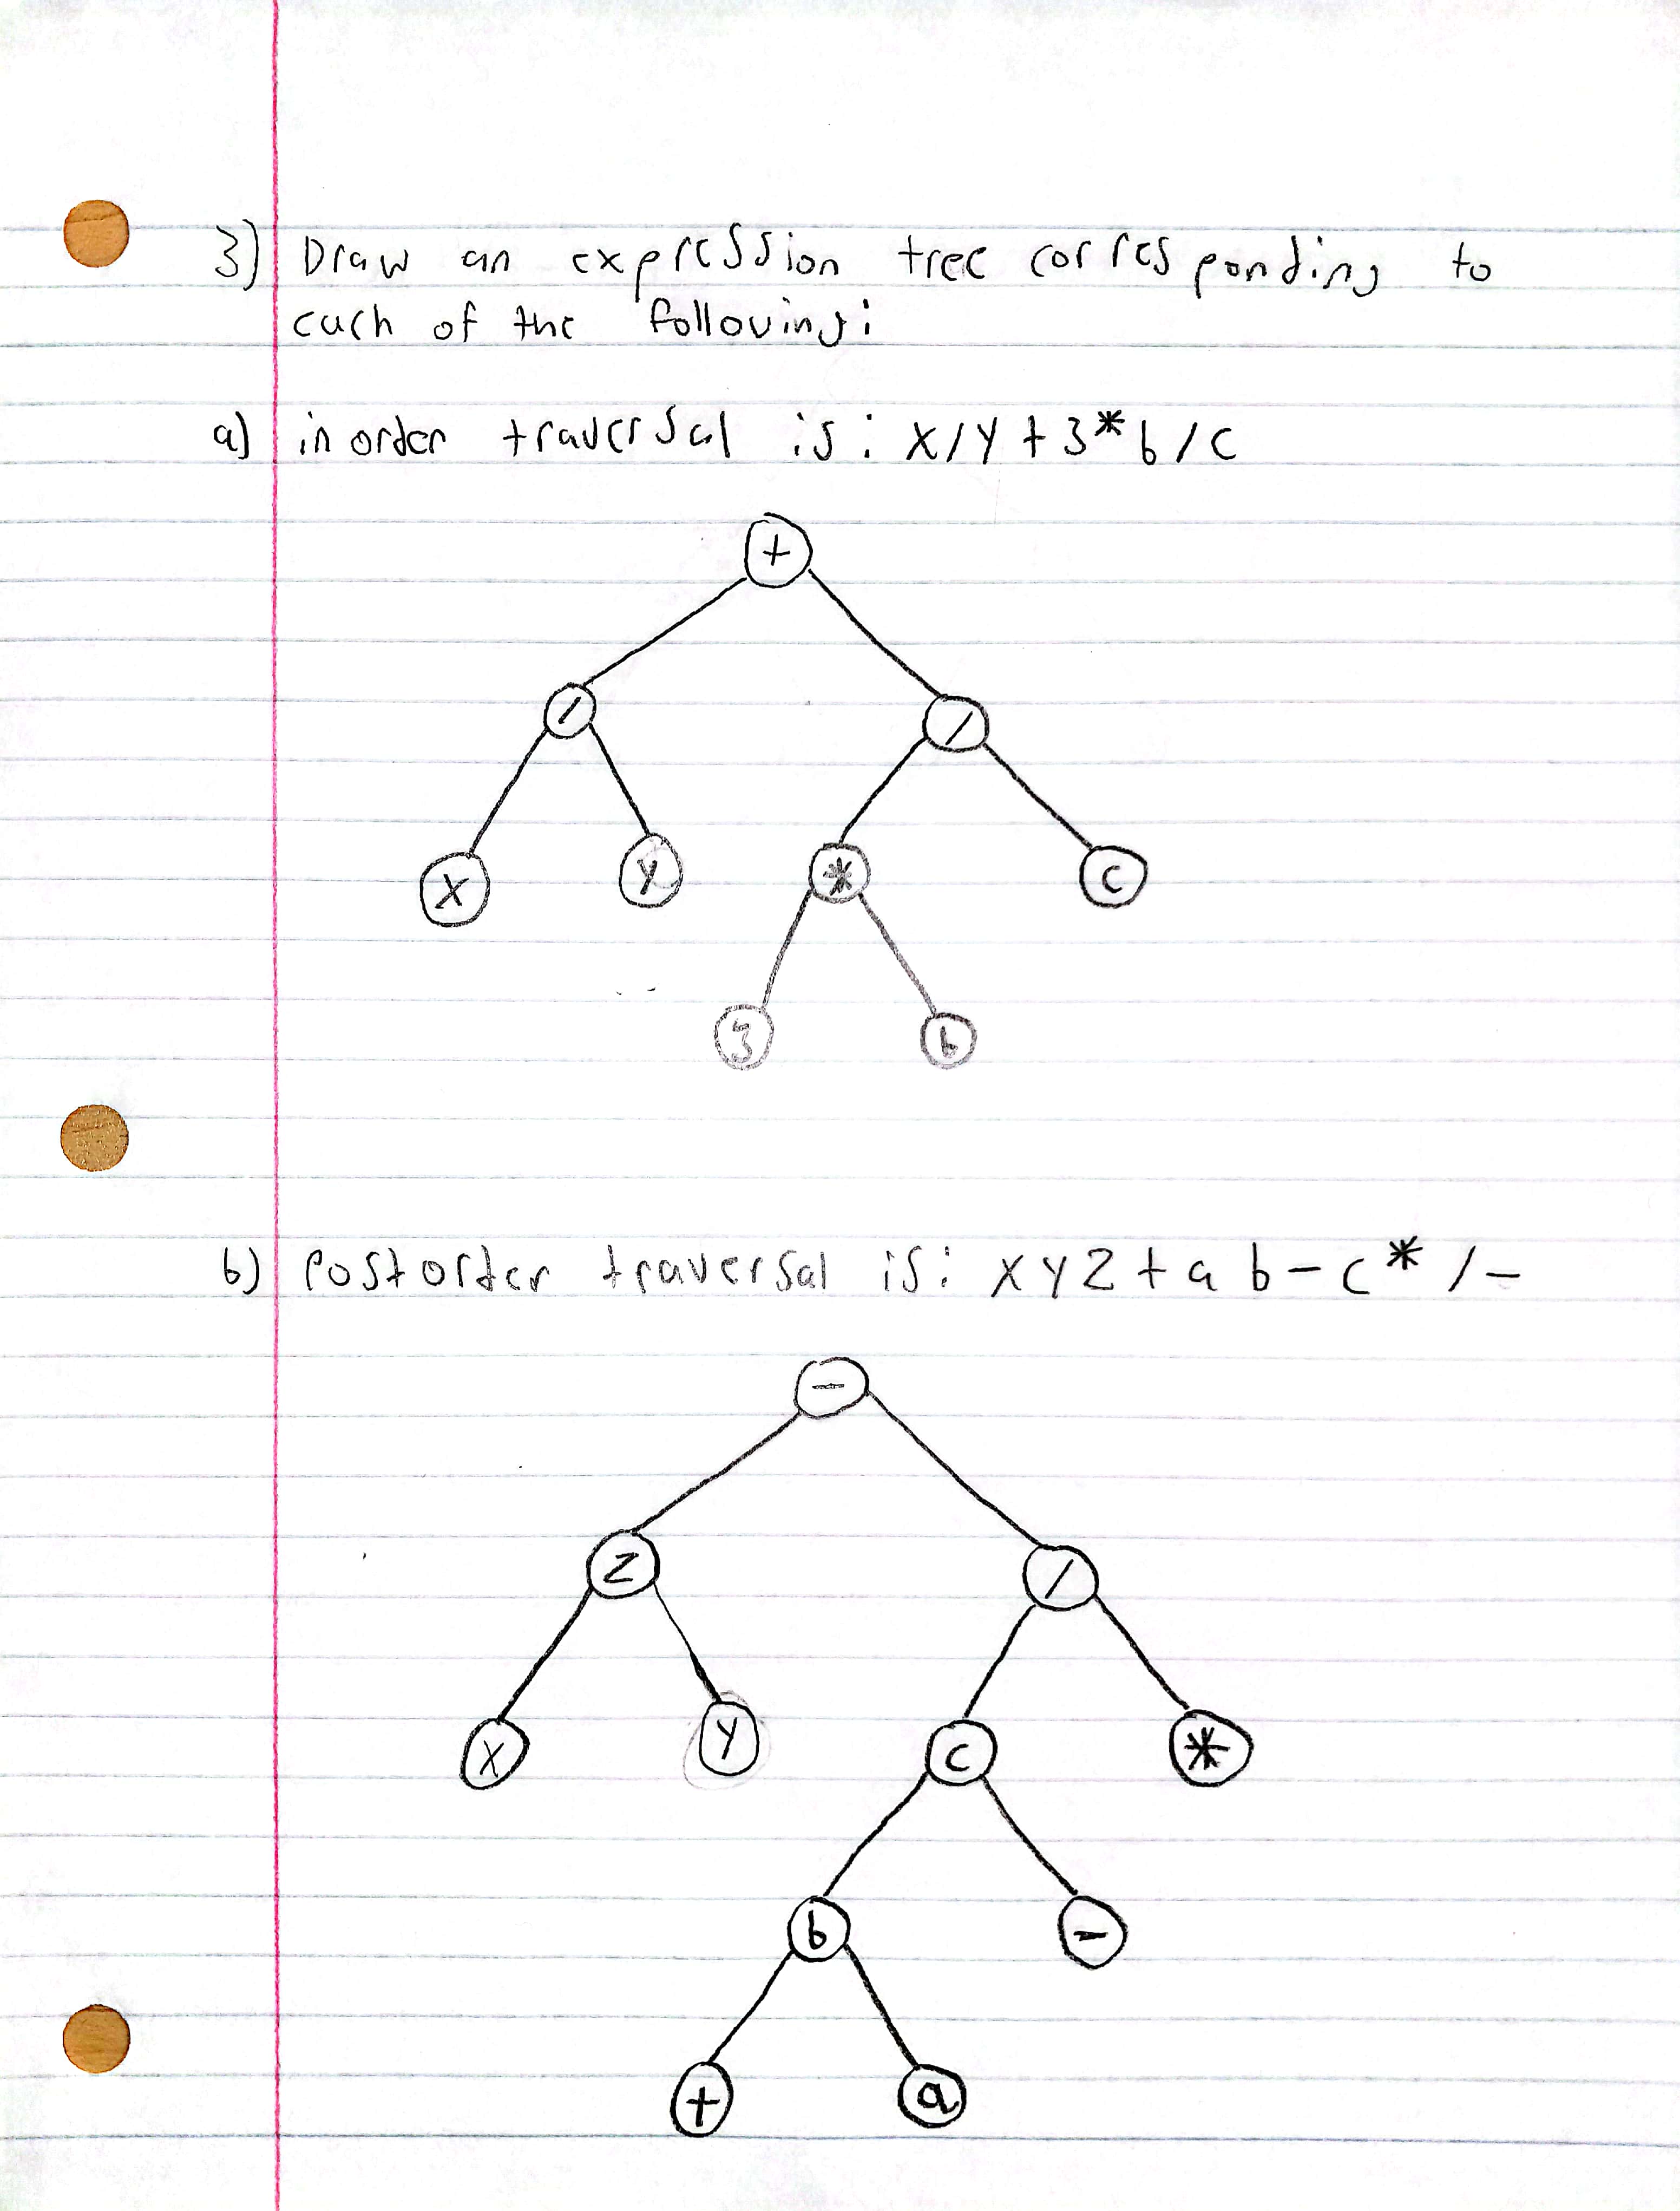 3) Draw an expression tree corresponding to
each of the following:
a) inorder traversal is: X/Y + 3*b/c
+
/ /
X Y * c
3 b
b) Postorder traversal is: X Y Z + a b - c * / -
-
Z /
X Y c *
b -
+ a